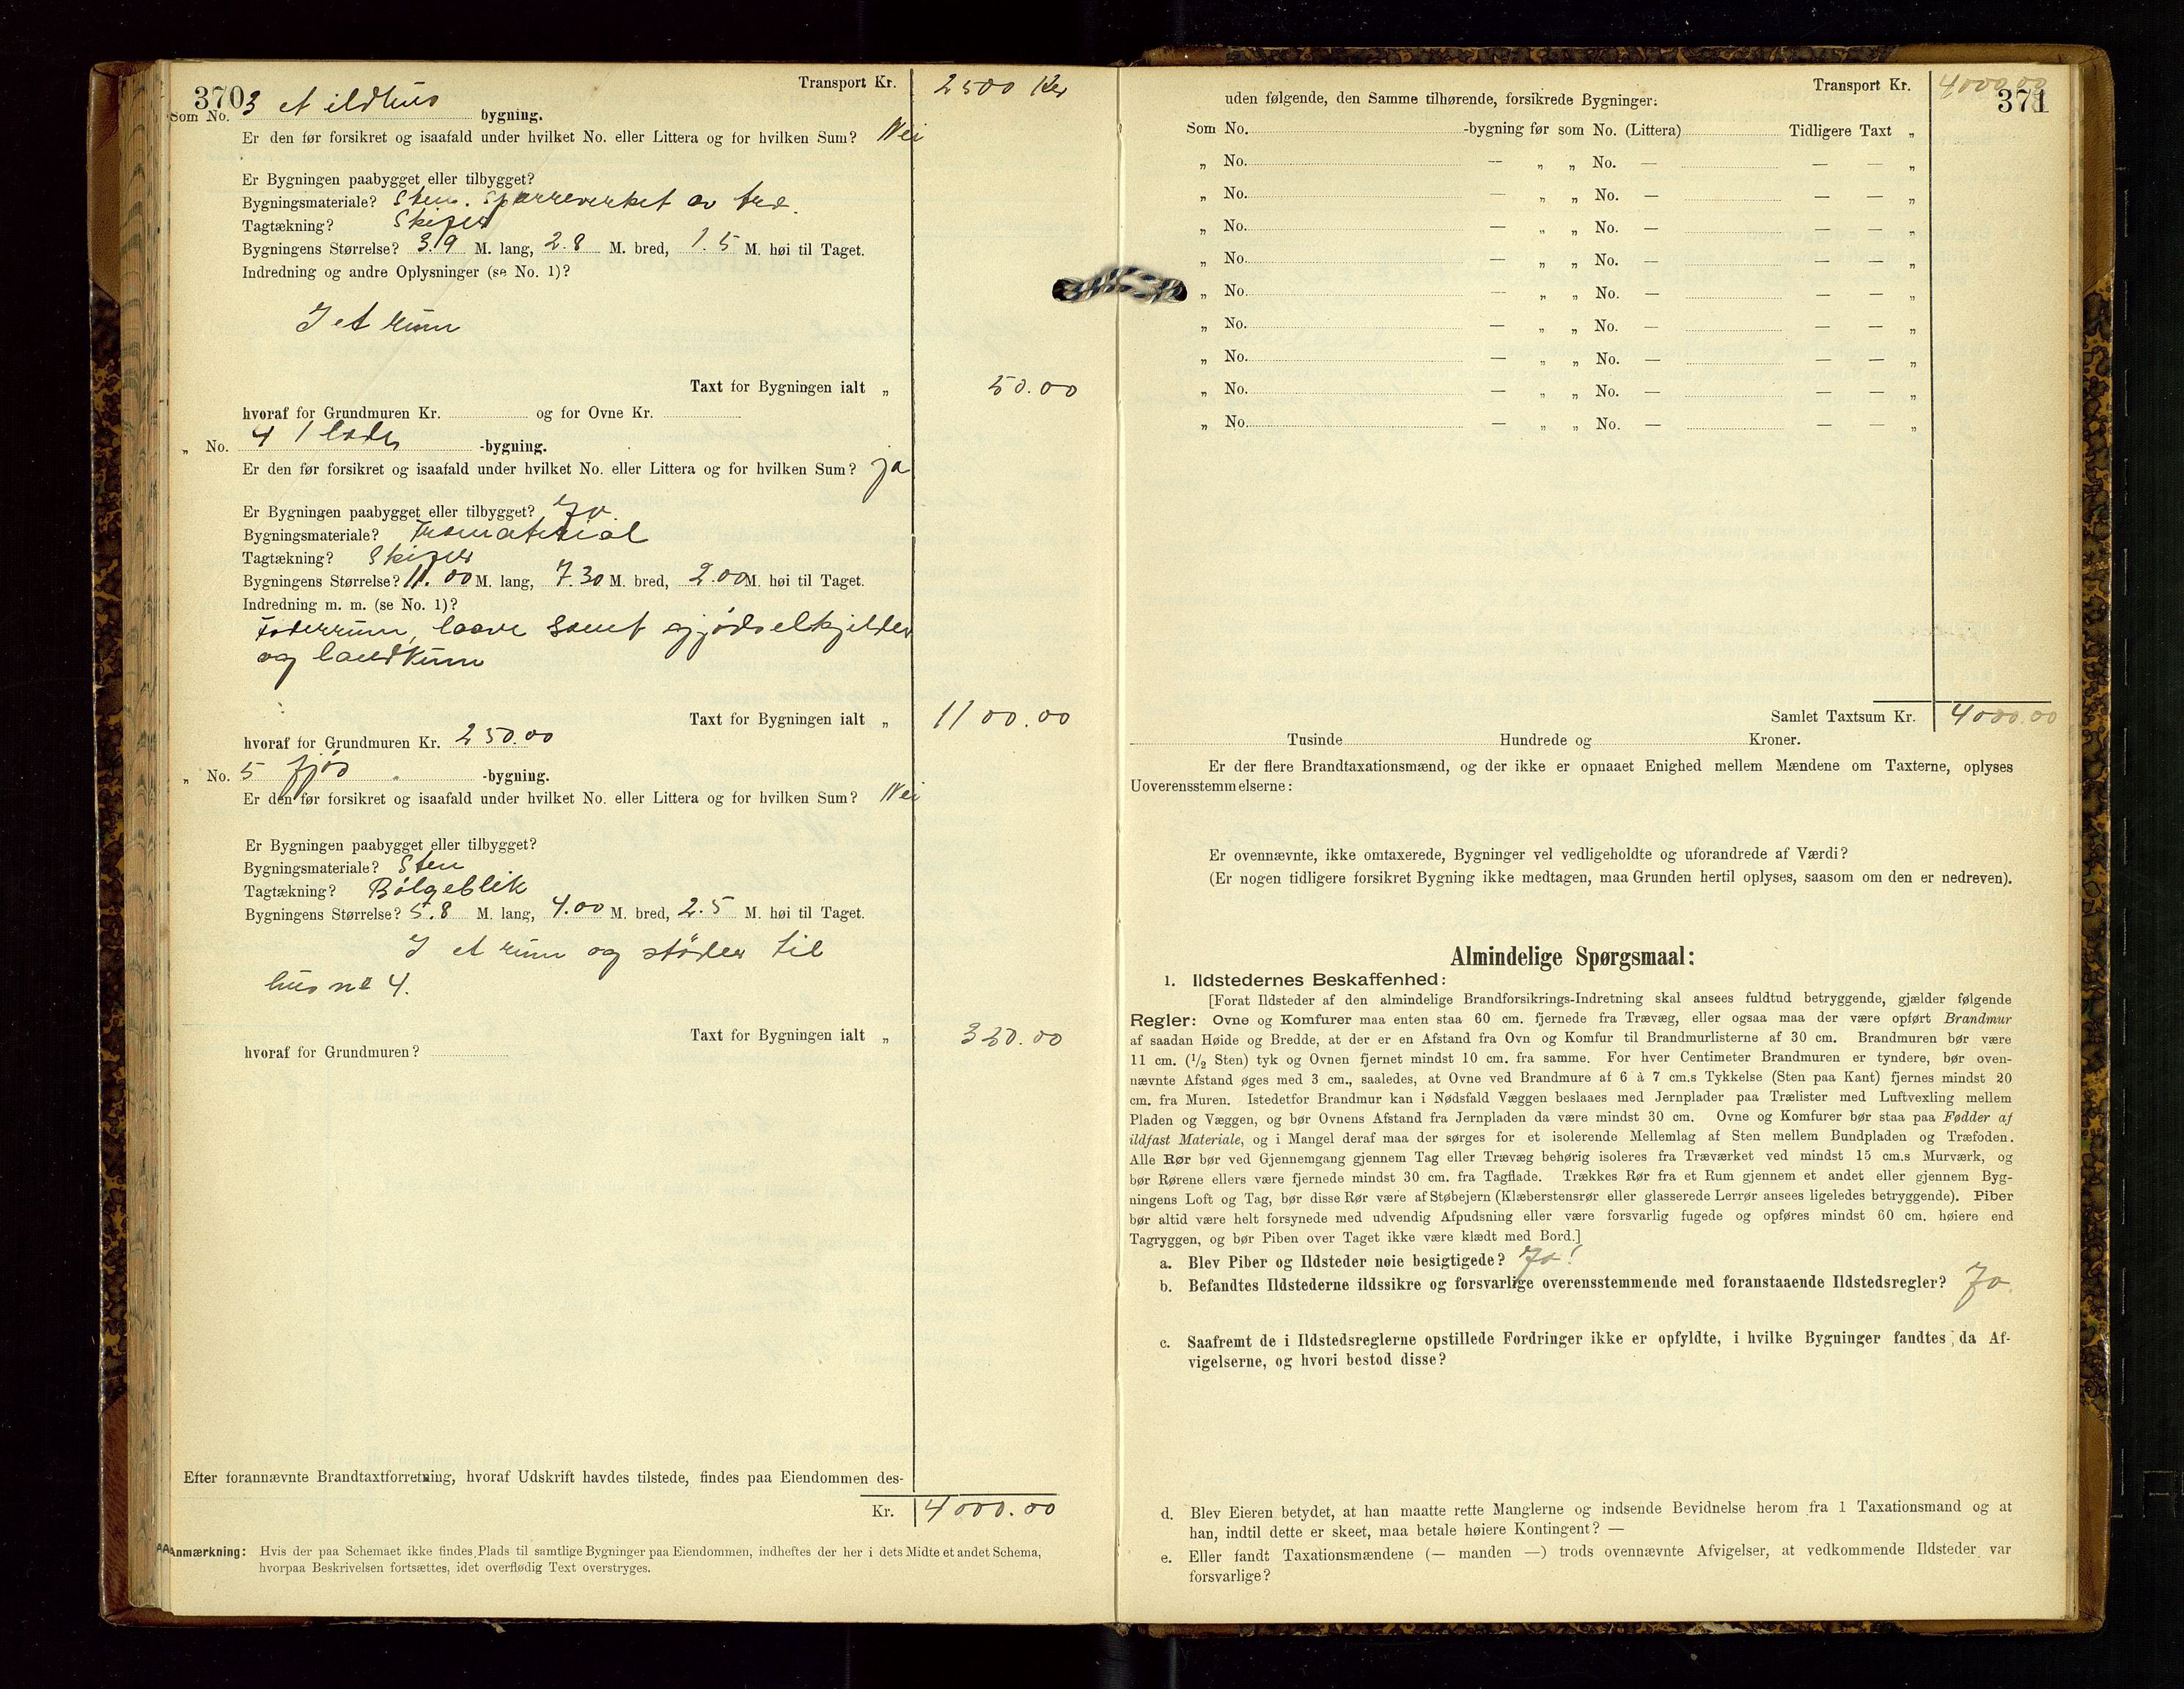 370
Transport Kr. 2500 Kr
Som No. 3 et ildhus bygning.
Er den før forsikret og isaafald under hvilket No. eller Littera og for hvilken Sum? Nei
Er Bygningen paabygget eller tilbygget?
Bygningsmateriale? Sten. Sparreverket av træ.
Tagtækning? Skifer
Bygningens Størrelse? 3.9 M. lang, 2.8 M. bred, 1.5 M. høi til Taget.
Indredning og andre Oplysninger (se No. 1)?
I et rum
Taxt for Bygningen ialt „ 50.00
hvoraf for Grundmuren Kr. og for Ovne Kr.
„ No. 4 1 lade -bygning.
Er den før forsikret og isaafald under hvilket No. eller Littera og for hvilken Sum? ja
Er Bygningen paabygget eller tilbygget? Ja
Bygningsmateriale? Træmaterial
Tagtækning? Skifer
Bygningens Størrelse? 11.00 M. lang, 7.30 M. bred, 2.00 M. høi til Taget.
Indredning m. m. (se No. 1)?
Foderrum, laave samt gjödselkjelder
og landkum
Taxt for Bygningen ialt „ 1100.00
hvoraf for Grundmuren Kr. 250.00
„ No. 5 fjös -bygning.
Er den før forsikret og isaafald under hvilket No. eller Littera og for hvilken Sum? Nei
Er Bygningen paabygget eller tilbygget?
Bygningsmateriale? Sten
Tagtækning? Bölgeblik
Bygningens Størrelse? 5.8 M. lang, 4.00 M. bred, 2.5 M. høi til Taget.
I et rum og stöder til
hus no 4.
Taxt for Bygningen ialt „ 350.00
hvoraf for Grundmuren?
Efter forannævnte Brandtaxtforretning, hvoraf Udskrift havdes tilstede, findes paa Eiendommen des-
Kr. 4000.00
Anmærkning: Hvis der paa Schemaet ikke findes Plads til samtlige Bygninger paa Eiendommen, indheftes der her i dets Midte et andet Schema,
hvorpaa Beskrivelsen fortsættes, idet overflødig Text overstryges.
Transport Kr. 4000.00
371
uden følgende, den Samme tilhørende, forsikrede Bygninger:
Som No. -bygning før som No. (Littera) Tidligere Taxt „
„ No. — „ „ No. — — — „
„ No. — „ „ No. — — — „
„ No. — „ „ No. — — — „
„ No. — „ „ No. — — — „
„ No. — „ „ No. — — — „
„ No. — „ „ No. — — — „
„ No. — „ „ No. — — — „
„ No. — „ „ No. — — — „
„ No. — „ „ No. — — — „
Samlet Taxtsum Kr. 4000.00
Tusinde Hundrede og Kroner.
Er der flere Brandtaxationsmænd, og der ikke er opnaaet Enighed mellem Mændene om Taxterne, oplyses
Uoverensstemmelserne:
Er ovennævnte, ikke omtaxerede, Bygninger vel vedligeholdte og uforandrede af Værdi?
(Er nogen tidligere forsikret Bygning ikke medtagen, maa Grunden hertil oplyses, saasom om den er nedreven).
Almindelige Spørgsmaal:
1. Ildstedernes Beskaffenhed:
[Forat Ildsteder af den almindelige Brandforsikrings-Indretning skal ansees fuldtud betryggende, gjælder følgende
Regler: Ovne og Komfurer maa enten staa 60 cm. fjernede fra Trævæg, eller ogsaa maa der være opført Brandmur
af saadan Høide og Bredde, at der er en Afstand fra Ovn og Komfur til Brandmurlisterne af 30 cm. Brandmuren bør være
11 cm. (1/2 Sten) tyk og Ovnen fjernet mindst 10 cm. fra samme. For hver Centimeter Brandmuren er tyndere, bør oven-
nævnte Afstand øges med 3 cm., saaledes, at Ovne ved Brandmure af 6 à 7 cm.s Tykkelse (Sten paa Kant) fjernes mindst 20
cm. fra Muren. Istedetfor Brandmur kan i Nødsfald Væggen beslaaes med Jernplader paa Trælister med Luftvexling mellem
Pladen og Væggen, og bør Ovnens Afstand fra Jernpladen da være mindst 30 cm. Ovne og Komfurer bør staa paa Fødder af
ildfast Materiale, og i Mangel deraf maa der sørges for et isolerende Mellemlag af Sten mellem Bundpladen og Træfoden.
Alle Rør bør ved Gjennemgang gjennem Tag eller Trævæg behørig isoleres fra Træværket ved mindst 15 cm.s Murværk, og
bør Rørene ellers være fjernede mindst 30 cm. fra Tagflade. Trækkes Rør fra et Rum gjennem et andet eller gjennem Byg-
ningens Loft og Tag, bør disse Rør være af Støbejern (Klæberstensrør eller glasserede Lerrør ansees ligeledes betryggende). Piber
bør altid være helt forsynede med udvendig Afpudsning eller være forsvarlig fugede og opføres mindst 60 cm. høiere end
Tagryggen, og bør Piben over Taget ikke være klædt med Bord.]
a. Blev Piber og Ildsteder nøie besigtigede? Ja!
b. Befandtes Ildstederne ildssikre og forsvarlige overensstemmende med foranstaaende Ildstedsregler? Ja.
c. Saafremt de i Ildstedsreglerne opstillede Fordringer ikke er opfyldte, i hvilke Bygninger fandtes da Af-
vigelserne, og hvori bestod disse?
d. Blev Eieren betydet, at han maatte rette Manglerne og indsende Bevidnelse herom fra 1 Taxationsmand og at
han, indtil dette er skeet, maa betale høiere Kontingent? —
e. Eller fandt Taxationsmændene (— manden —) trods ovennævnte Afvigelser, at vedkommende Ildsteder var
forsvarlige?